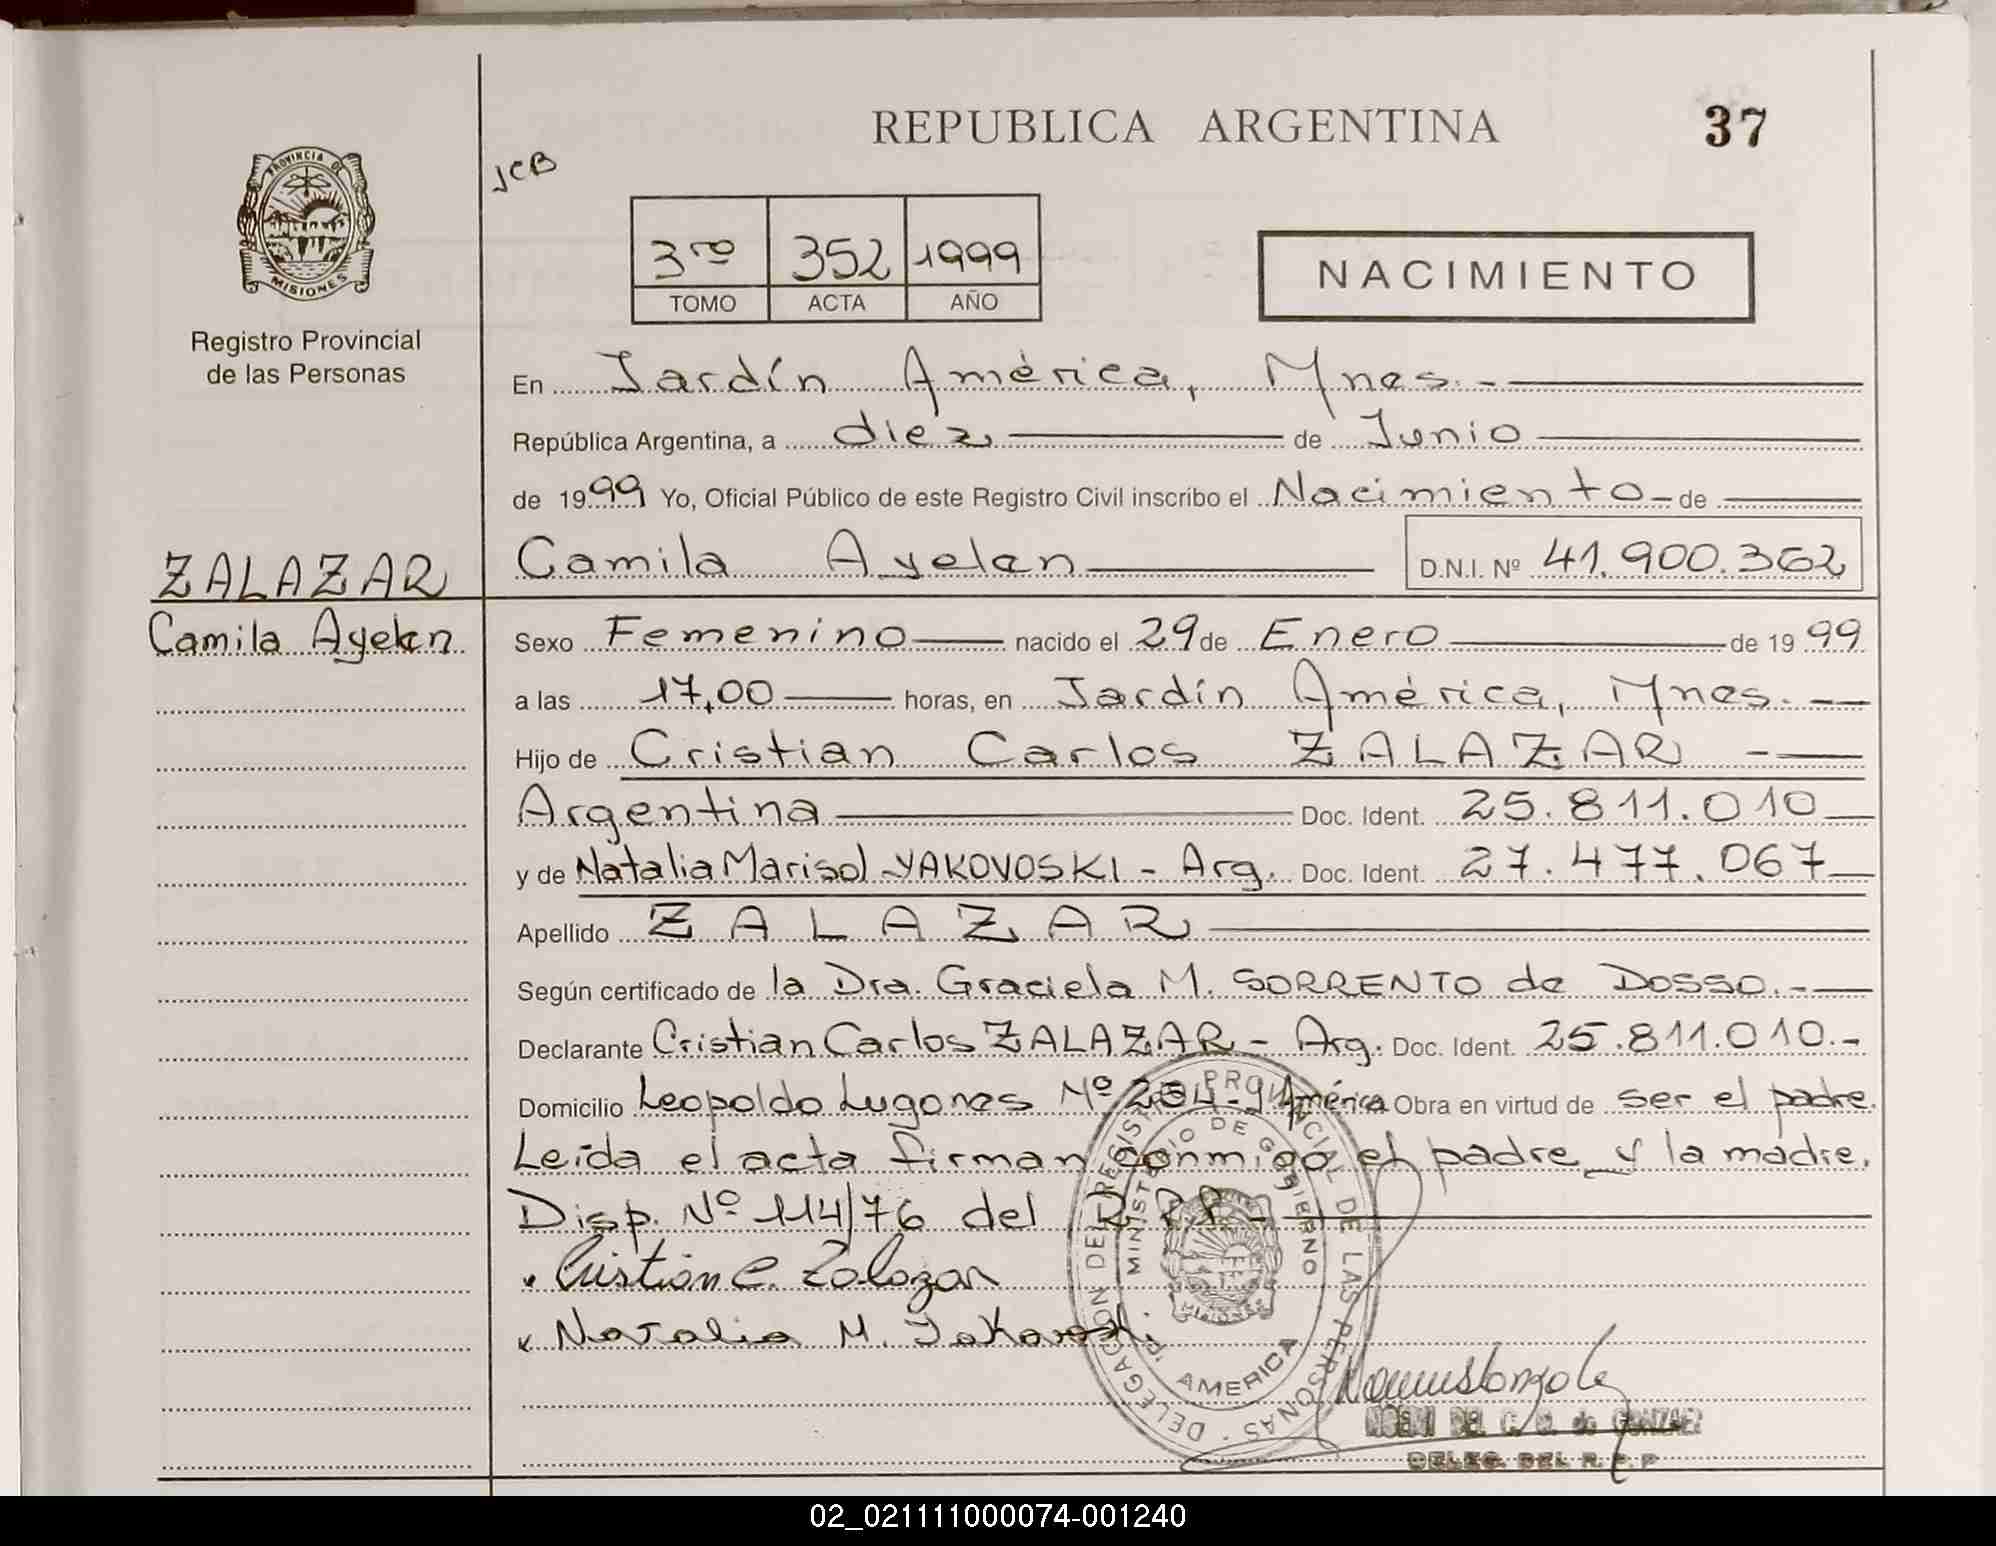 REPUBLICA ARGENTINA
37
JCB
PROVINCIA DE
MISIONES
3ro 352 1999
TOMO ACTA AÑO
NACIMIENTO
Registro Provincial
de las Personas
En Jardín América, Mnes.-
República Argentina, a diez de Junio
de 1999 Yo, Oficial Público de este Registro Civil inscribo el Nacimiento - de
ZALAZAR
Camila Ayelen
Camila Ayelen D.N.I. Nº 41.900.362
Sexo Femenino nacido el 29 de Enero de 1999
a las 17,00 horas, en Jardín América, Mnes.
Hijo de Cristian Carlos ZALAZAR -
Argentina Doc. Ident. 25.811.010
y de Natalia Marisol YAKOVOSKI - Arg. Doc. Ident. 27.477.067
Apellido ZALAZAR
Según certificado de la Dra. Graciela M. SORRENTO de DOSSO.-
Declarante Cristian Carlos ZALAZAR - Arg. Doc. Ident. 25.811.010.-
Domicilio Leopoldo Lugones Nº América Obra en virtud de ser el padre.
Leída el acta firman conmigo el padre y la madre.
Disp. Nº 114/76 del R.P.P.-
Cristian C. Zalazar
Natalia M.
DELEGACION DEL REGISTRO PROVINCIAL DE LAS PERSONAS
MINISTERIO DE GOBIERNO
MISIONES
AMERICA
NOEMI DEL C. de GONZALEZ
DELEG. DEL R.P.P
02_021111000074-001240